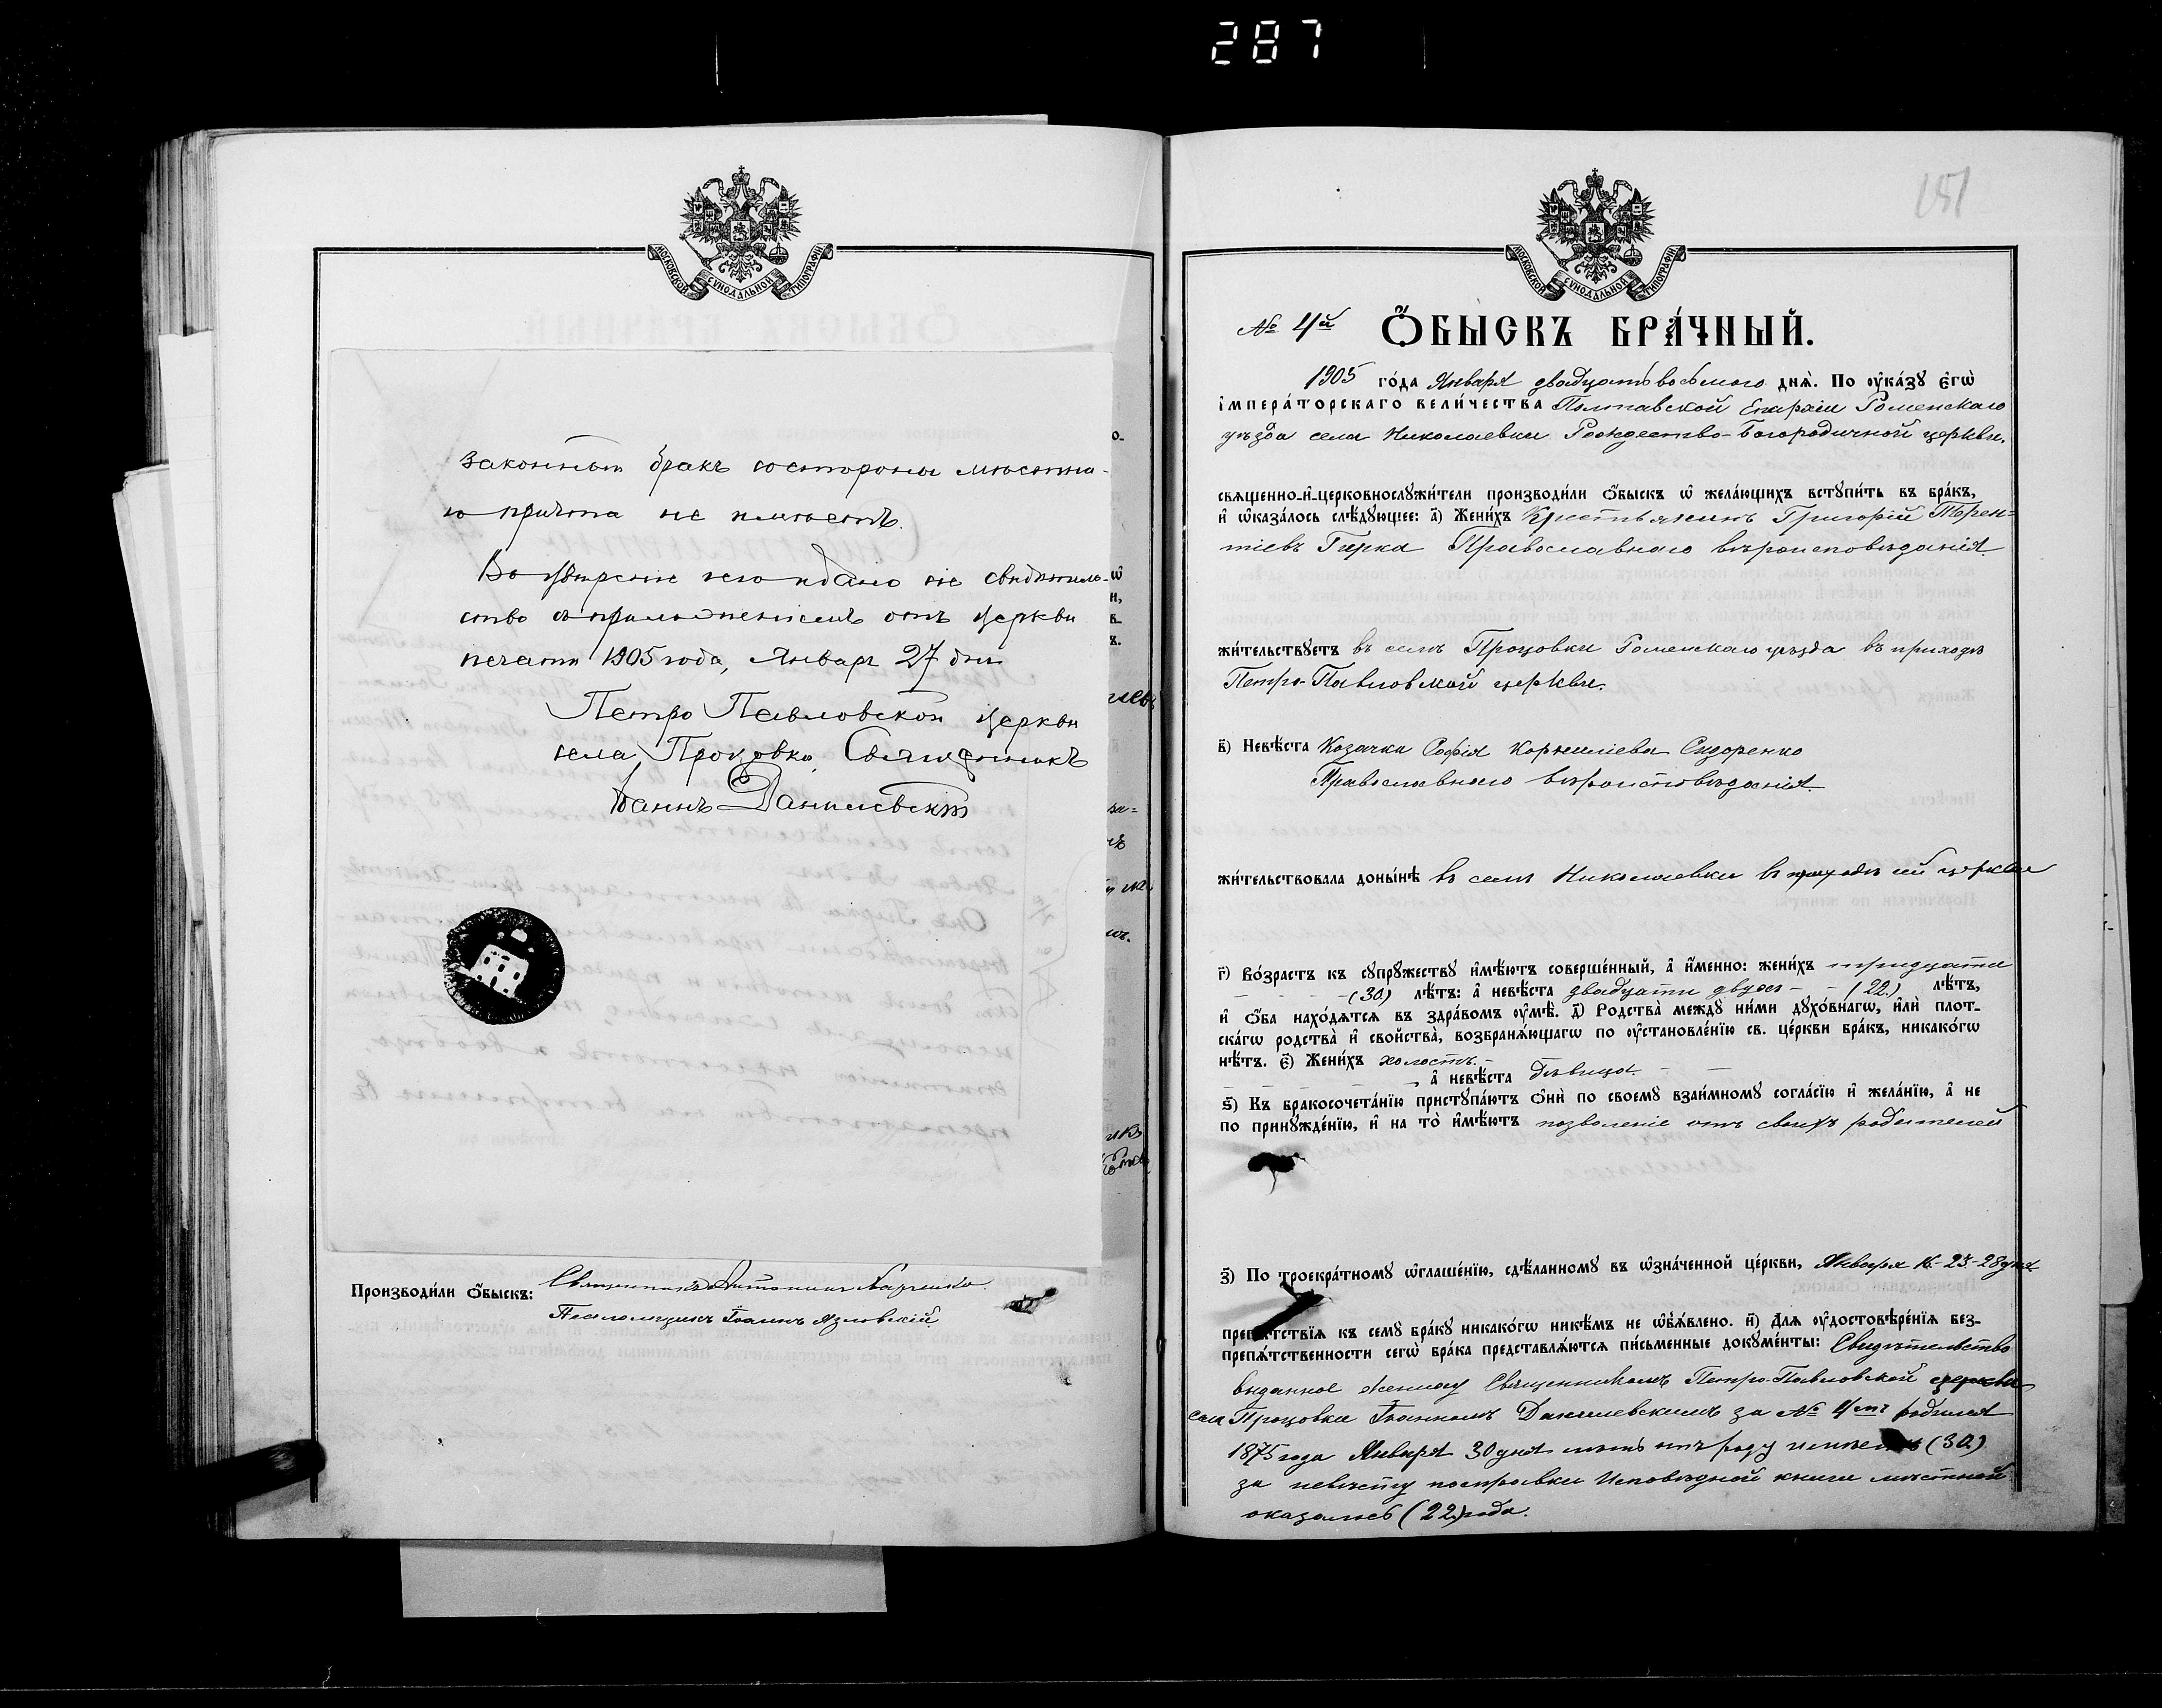 287
МОСКОВСКОЙ СѴНОДАЛЬНОЙ ТИПОГРАФІИ
законный бракъ со стороны мѣстна-
го причта не имѣетъ.
Во увѣреніе чего и дано сіе свидѣтель-
ство съ приложеніемъ отъ церкви
печати 1905 года, Январь 27 дня
Петро Павловской церкви
села Процовки, Священникъ
Іоаннъ Данилевскій
Производи́ли Ѻ҆́быскъ: Священникъ
Псаломщикъ Іоаннъ Язловскій
151
МОСКОВСКОЙ СѴНОДАЛЬНОЙ ТИПОГРАФІИ
№ 4й Ѻ҆́БЫСКЪ БРА́ЧНЫЙ.
1905 го́да Января двадцать восьмого днѧ̀. По ᲂу҆ка́зꙋ є҆гѡ̀
і҆мпера́торскаго вели́чества Полтавской Епархіи Роменскаго
уѣзда села Николаевки Рождество-Богородичной церкви,
свѧще́нно-и҆-церковнослꙋжи́тели производи́ли ѻ҆́быскъ ѡ҆ жела́ющихъ встꙋпи́ть въ бра́къ,
и҆ ѡ҆каза́лось слѣ́дꙋющее: а҃) Жени́хъ Крестьянинъ Григорій Терен=
тіевъ Гирка Православнаго вѣроисповѣданія
жи́тельствꙋетъ въ селѣ Процовки Роменскаго уѣзда въ приходѣ
Петро-Павловской церкви.
в҃) Невѣ́ста Козачка Софія Корнилieва Сидоренко
Православнаго вѣроисповѣданія
жи́тельствовала доны́нѣ въ селѣ Николаевки въ приходѣ сей церкви
г҃) Во́зрастъ къ сꙋпрꙋ́жествꙋ и҆мѣ́ютъ соверше́нный, а҆ и҆́менно: жени́хъ тридцати
(30) лѣ́тъ: а҆ невѣ́ста двадцати двухъ - - (22) лѣ́тъ,
и҆ ѻ҆́ба нахо́дѧтсѧ въ здра́вомъ ᲂу҆мѣ̀. д҃) Родства̀ междꙋ̀ ни́ми дꙋхо́внагѡ, и҆лѝ плот-
ска́гѡ родства̀ и҆ свойства̀, возбранѧ́ющагѡ по ᲂу҆становле́нїю св. це́ркви бра́къ, никако́гѡ
нѣ́тъ. є҃) Жени́хъ холостъ -
, а҆ невѣ́ста дѣвица.
ѕ҃) Къ бракосочета́нїю пристꙋпа́ютъ ѻ҆нѝ по своемꙋ̀ взаи́мномꙋ согла́сїю и҆ жела́нїю, а҆ не
по принꙋжде́нїю, и҆ на то̀ и҆мѣ́ютъ позволеніе отъ своихъ родителей
з҃) По троекра́тномꙋ ѡ҆глаше́нїю, сдѣ́ланномꙋ въ ѡ҆зна́ченной це́ркви, Января 16-23-28 дня
препѧ́тствїѧ къ семꙋ̀ бра́кꙋ никако́гѡ никѣ́мъ не ѡ҆б̾ѧ́влено. и҃) Длѧ ᲂу҆достовѣре́нїѧ без-
препѧ́тственности сегѡ̀ бра́ка представлѧ́ютсѧ пи́сьменные докꙋме́нты: Свидѣтельство
выданное жениху Священникомъ Петро-Павловской церкви
села Процовки Іоанномъ Данилевскимъ за № 4мъ родился
1875 года Января 30 дня лѣтъ отъ роду имѣетъ (30)
за невѣсту по справки Исповѣдной книги мѣстной
оказалось (22) года.